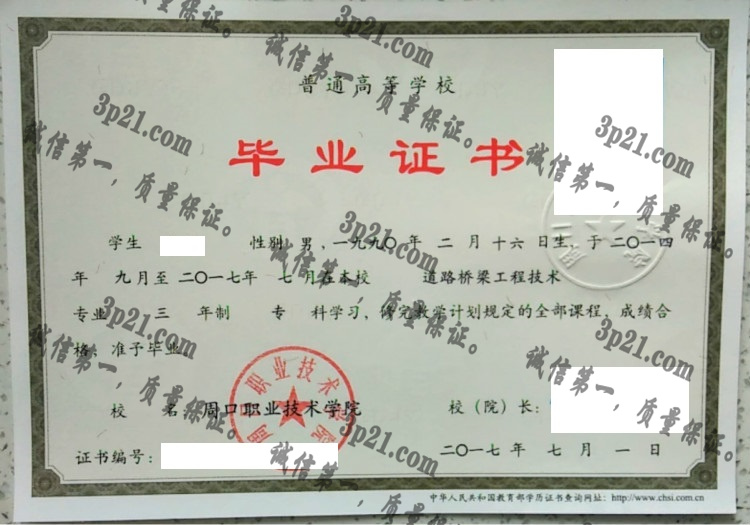 普通高等学校
毕业证书
学生 性别 男，一九九〇年 二 月 十六 日生，于 二〇一四
年 九 月至 二〇一七年 七 月在本校 道路桥梁工程技术
专业 三 年制 专 科学习，修完教学计划规定的全部课程，成绩合
格，准予毕业。
校 名：周口职业技术学院 校（院）长：
证书编号： 二〇一七 年 七 月 一 日
中华人民共和国教育部学历证书查询网址：http://www.chsi.com.cn
周口职业技术学院
3p21.com
诚信第一，质量保证。
3p21.com
诚信第一，质量保证。
3p21.com
诚信第一，质量保证。
3p21.com
诚信第一，质量保证。
3p21.com
诚信第一，质量保证。
3p21.com
诚信第一，质量保证。
3p21.com
诚信第一，质量保证。